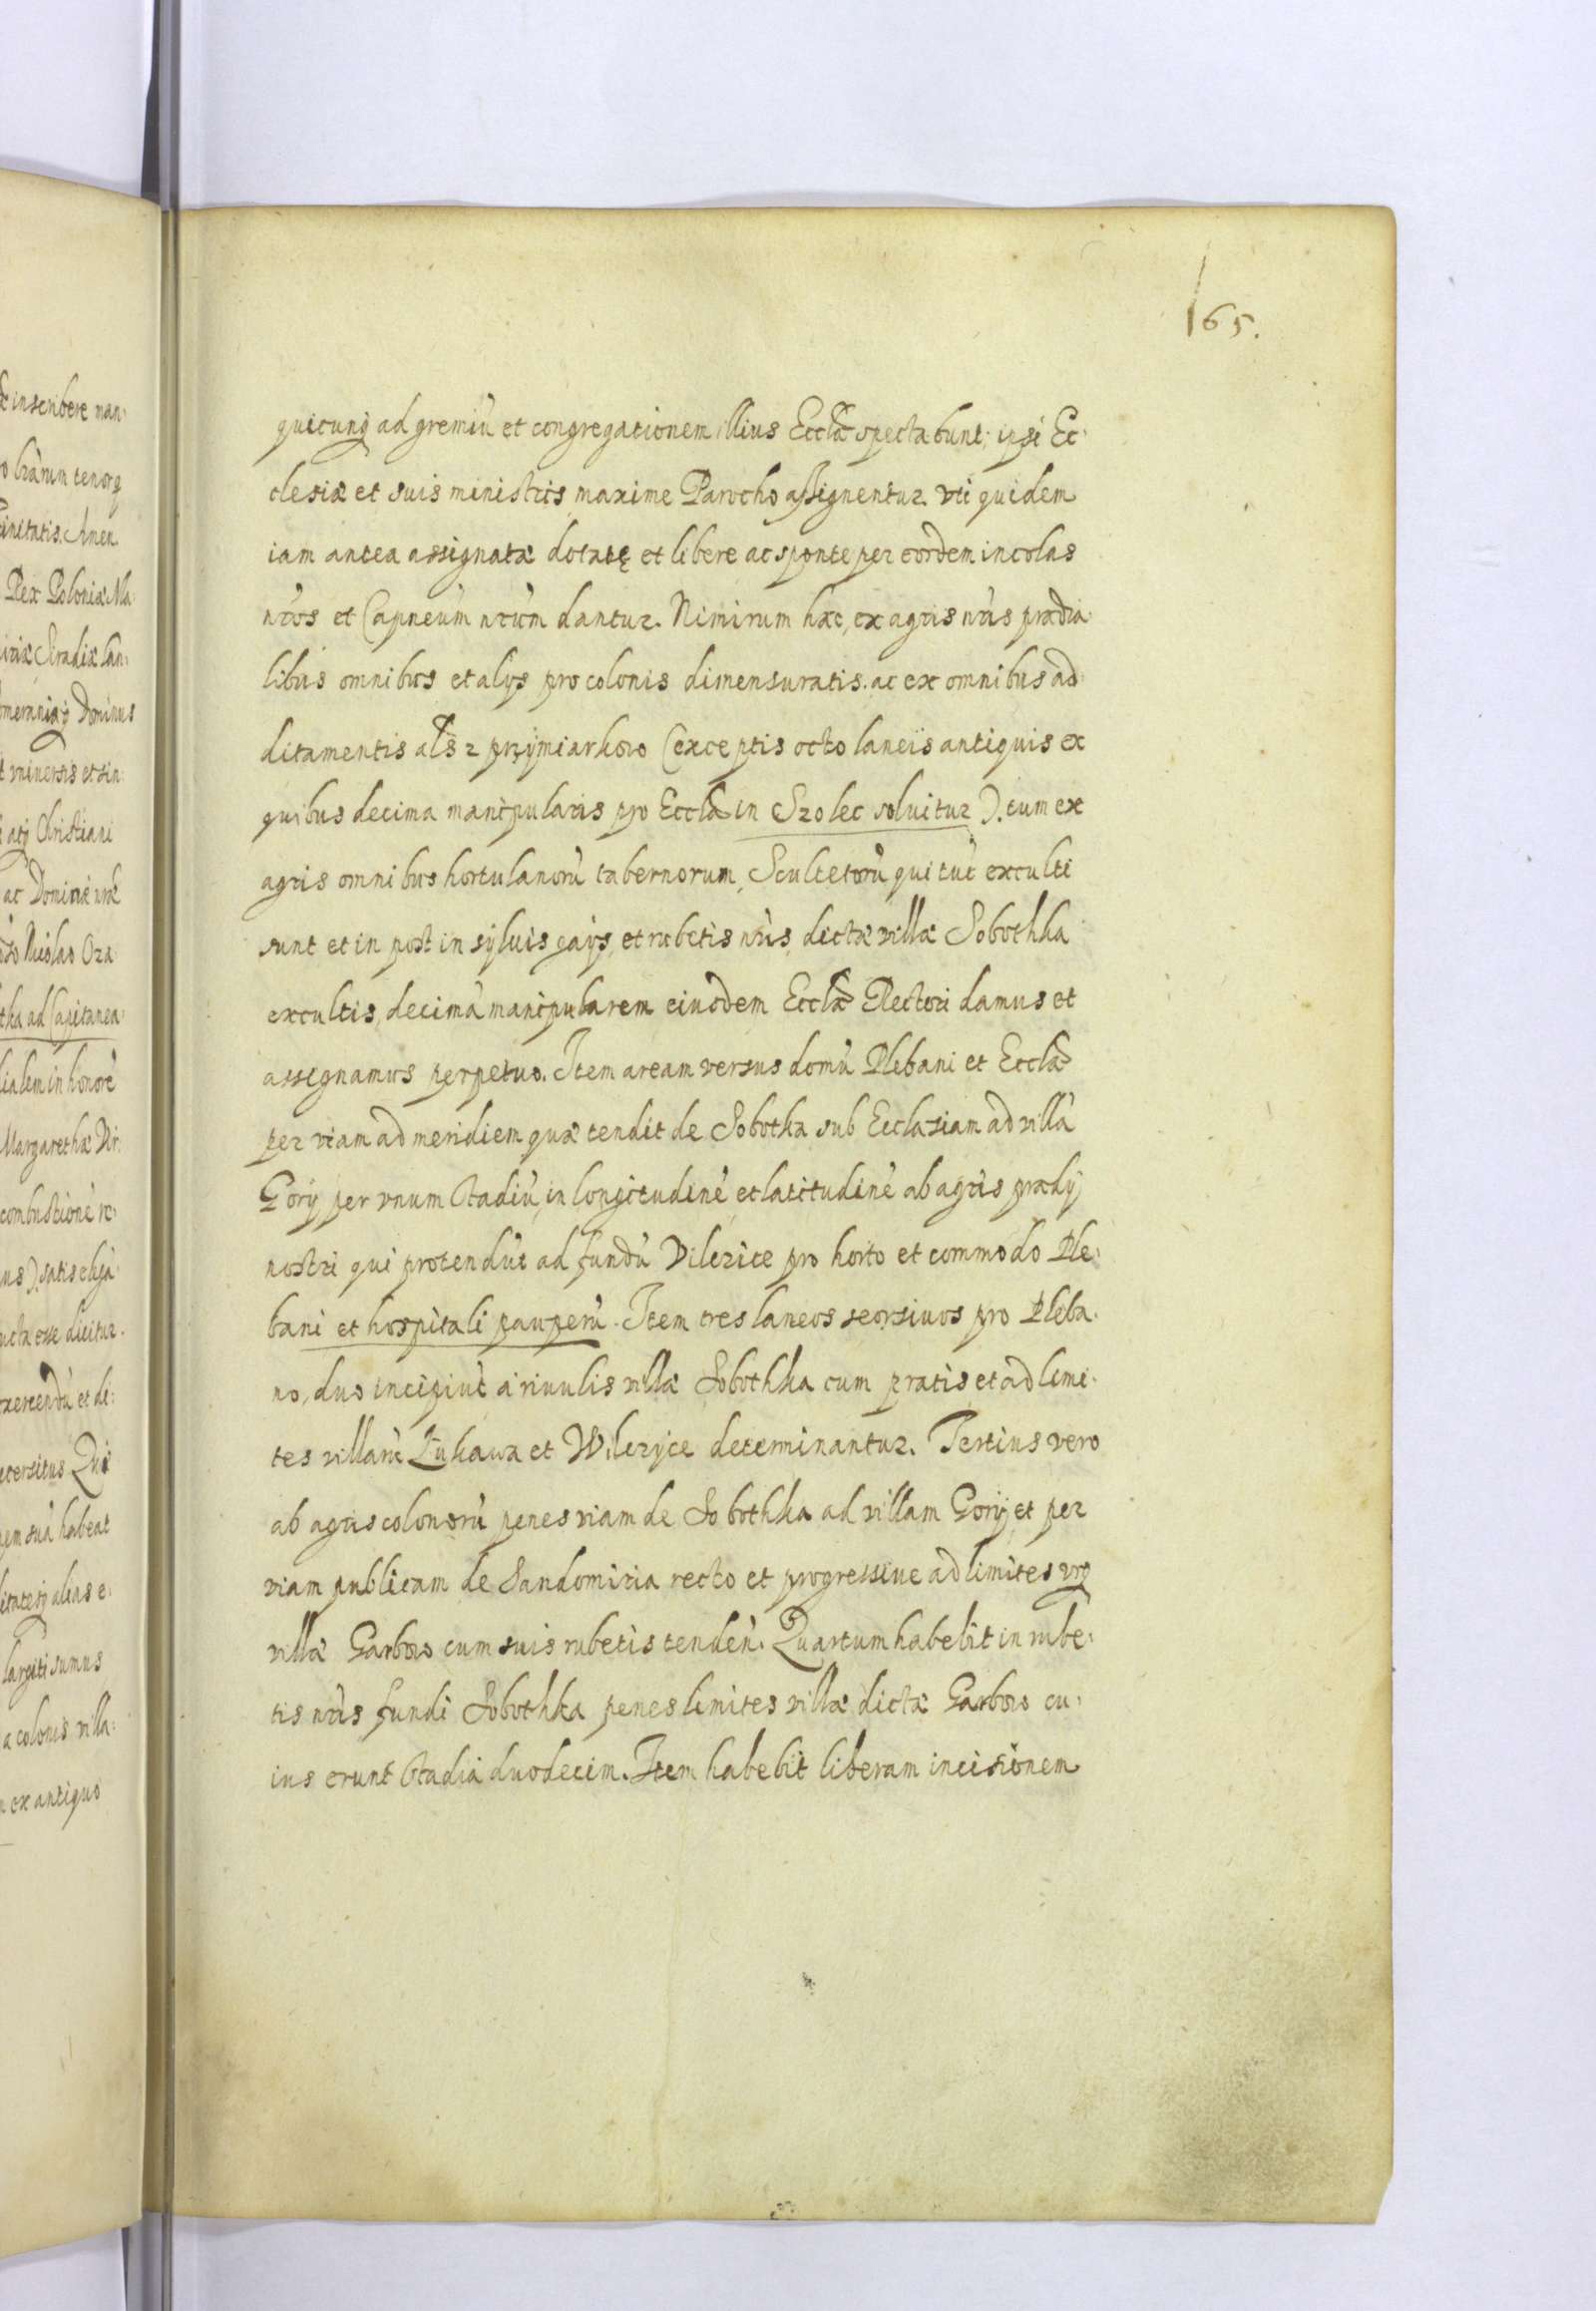 165.
quicunq ad gremiũ et congregationem illius Ecclæ spectabunt; ipsi Ec:
clesiæ et suis ministris maxime Parocho assignentur. vti quidem
iam antea assignatæ dotatę et libere ac sponte per eosdem incolas
nros et Capneum nrum dantur. Nimirum hæc, ex agris nris prædia:
libus omnibus et alys pro colonis dimensuratis. ac ex omnibus ad:
ditamentis als z przymiarkow (exceptis octo laneis antiquis ex
quibus decima manipularis pro Eccla in Szolec soluitur). cum ex
agris omnibus hortulanorũ tabernorum, Scultetorũ qui tũc exculti
sunt et in post in syluis gays, et rubetis nris, dictæ villæ Sobothka
excultis, decimã manipularem eiusdem Ecclæ Rectori damus et
assignamus perpetuo. Item aream versus domũ Plebani et Ecclæ
per viam ad meridiem quæ tendit de Sobotka sub Ecclesiam ad villã
Gory per vnum stadiũ, in longitudinẽ et latitudinẽ ab agris prædÿ
nostri qui protendũt ad fundũ Vilczice pro horto et commodo Ple:
bani et hospitali pauperũ. Item tres laneos seorsiuos pro Pleba:
no, duo incipiũt à riuulis villæ Sobothka cum pratis et ad limi:
tes villarũ Łukawa et Wilczyce determinantur. Tertius vero
ab agris colonorũ penes viam de Sobothka ad villam Gorÿ et per
viam publicam de Sandomiria recto et progressiue ad limites vsq
villæ Garbow cum suis rubetis tendeñ. Quartum habebit in rube:
tis nris fundi Sobothka penes limites villæ dictæ Garbow cu:
ius erunt stadia duodecim. Item habebit liberam incisionem
inscribere man:
tenorq
Amen
Rex Poloniæ Ma:
Siradiæ
Dominus
et sin:
Christiani
ac
Nicolao Cza:
ad Capitanea:
in honorẽ
Margarethæ Vir:
combustionẽ re:
satis eliga:
esse dicitur.
et di:
Qui
suã habeat
alias e:
largiti sumus
a colonis villa:
ex antiquo